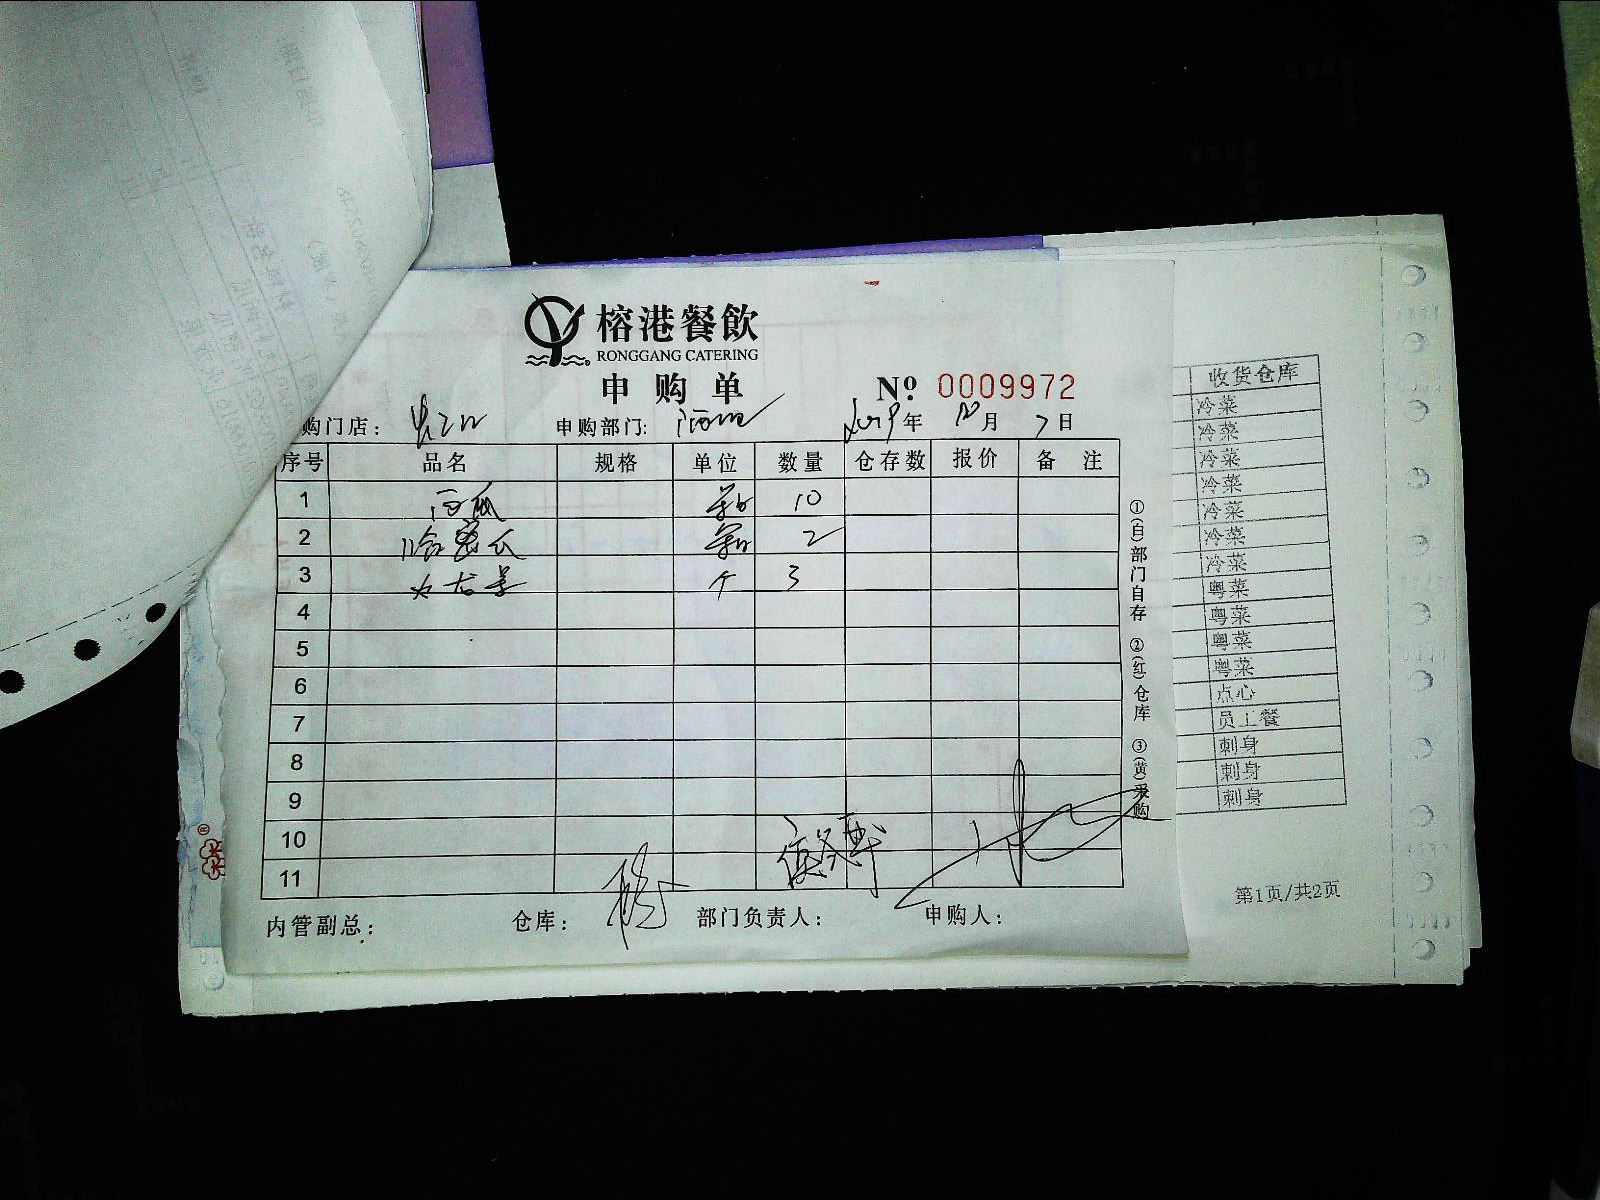 榕港餐飲
RONGGANG CATERING
申购单
№ 0009972
购门店： 申购部门: 酒吧 2019年 10月 7日
序号 品名 规格 单位 数量 仓存数 报价 备 注
1 西瓜 10
2 哈密瓜 2
3 火龙果 个 3
4
5
6
7
8
9
10
11
内管副总： 仓库： 部门负责人： 申购人：
①(自)部门自存 ②(红)仓库 ③(黄)采购
收货仓库
冷菜
冷菜
冷菜
冷菜
冷菜
冷菜
冷菜
粤菜
粤菜
粤菜
粤菜
点心
员工餐
刺身
刺身
刺身
第1页/共2页